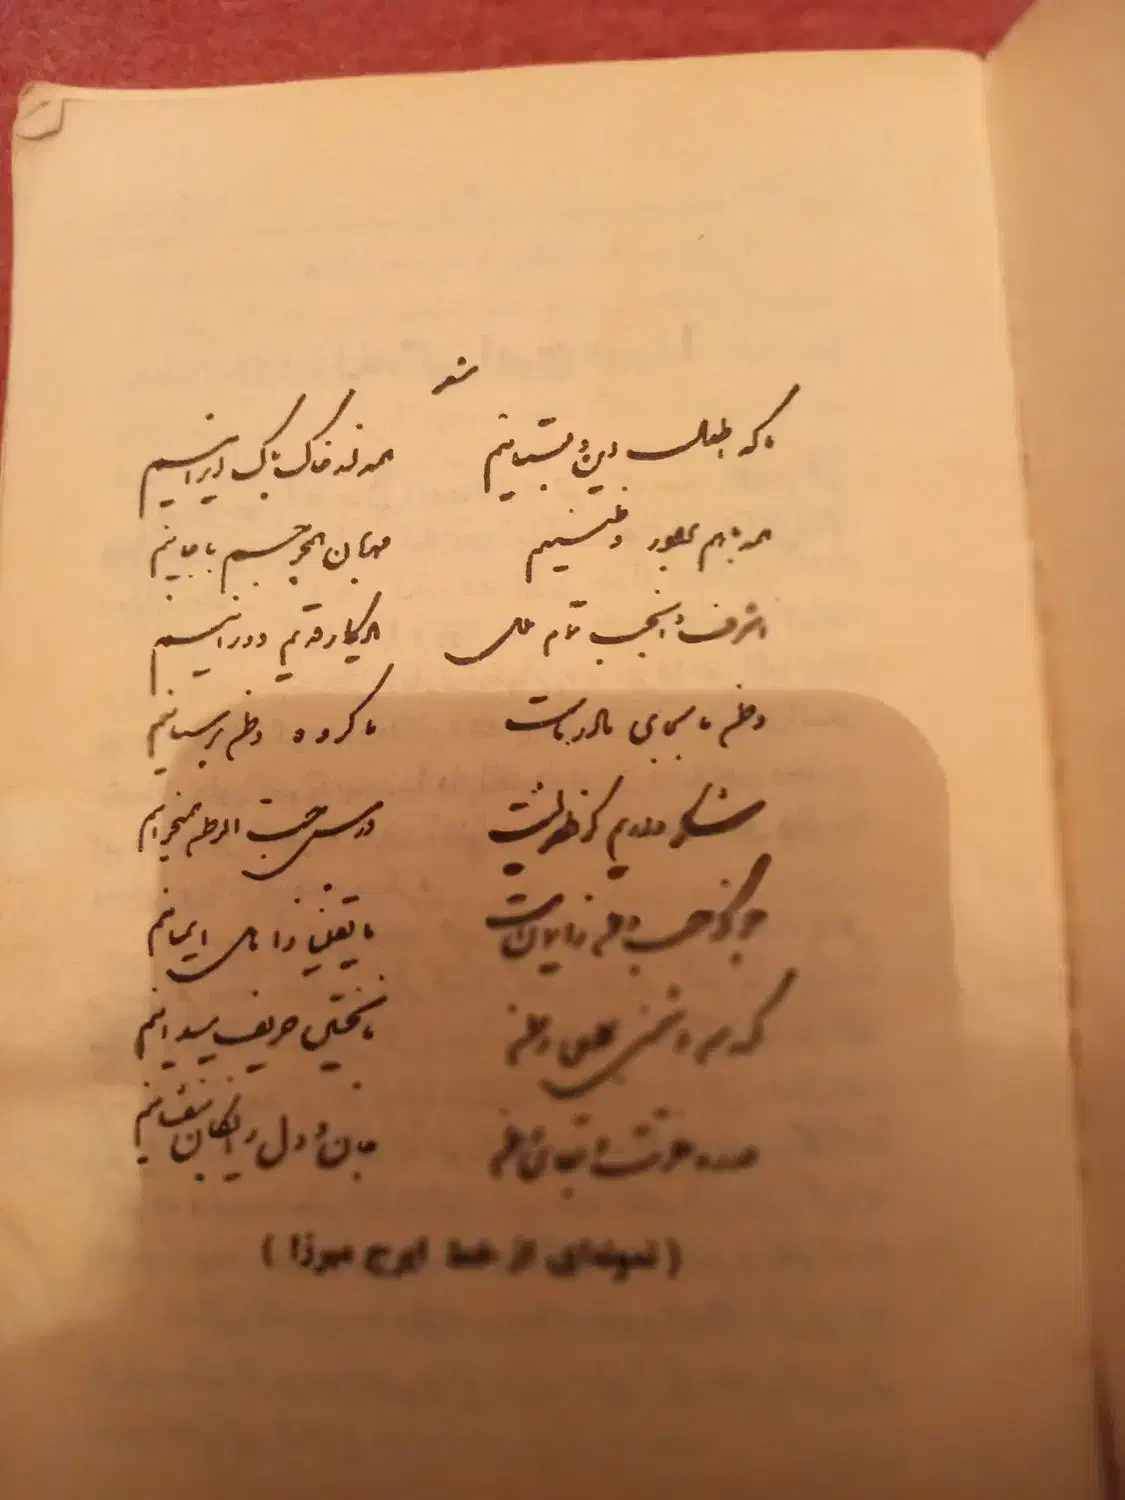 ما که اطفال این دبستانیم همه از خاک پاک ایرانیم
همه با هم برادر وطنیم مهربان همچو جسم با جانیم
اشرف و انجب تمام ملل یادگار قدیم دورانیم
وطن ما بجای مادر ماست ما گروه وطن پرستانیم
شکر داریم کز طفولیت درس حب الوطن همیخوانیم
چونکه حب وطن ز ایمانست ما یقیناً ز اهل ایمانیم
دشمنی وطن ما نخستین حریف میدانیم
در ره عزت و بقای وطن جان و دل رایگان بیفشانیم
(نمونه‌ای از خط ایرج میرزا)